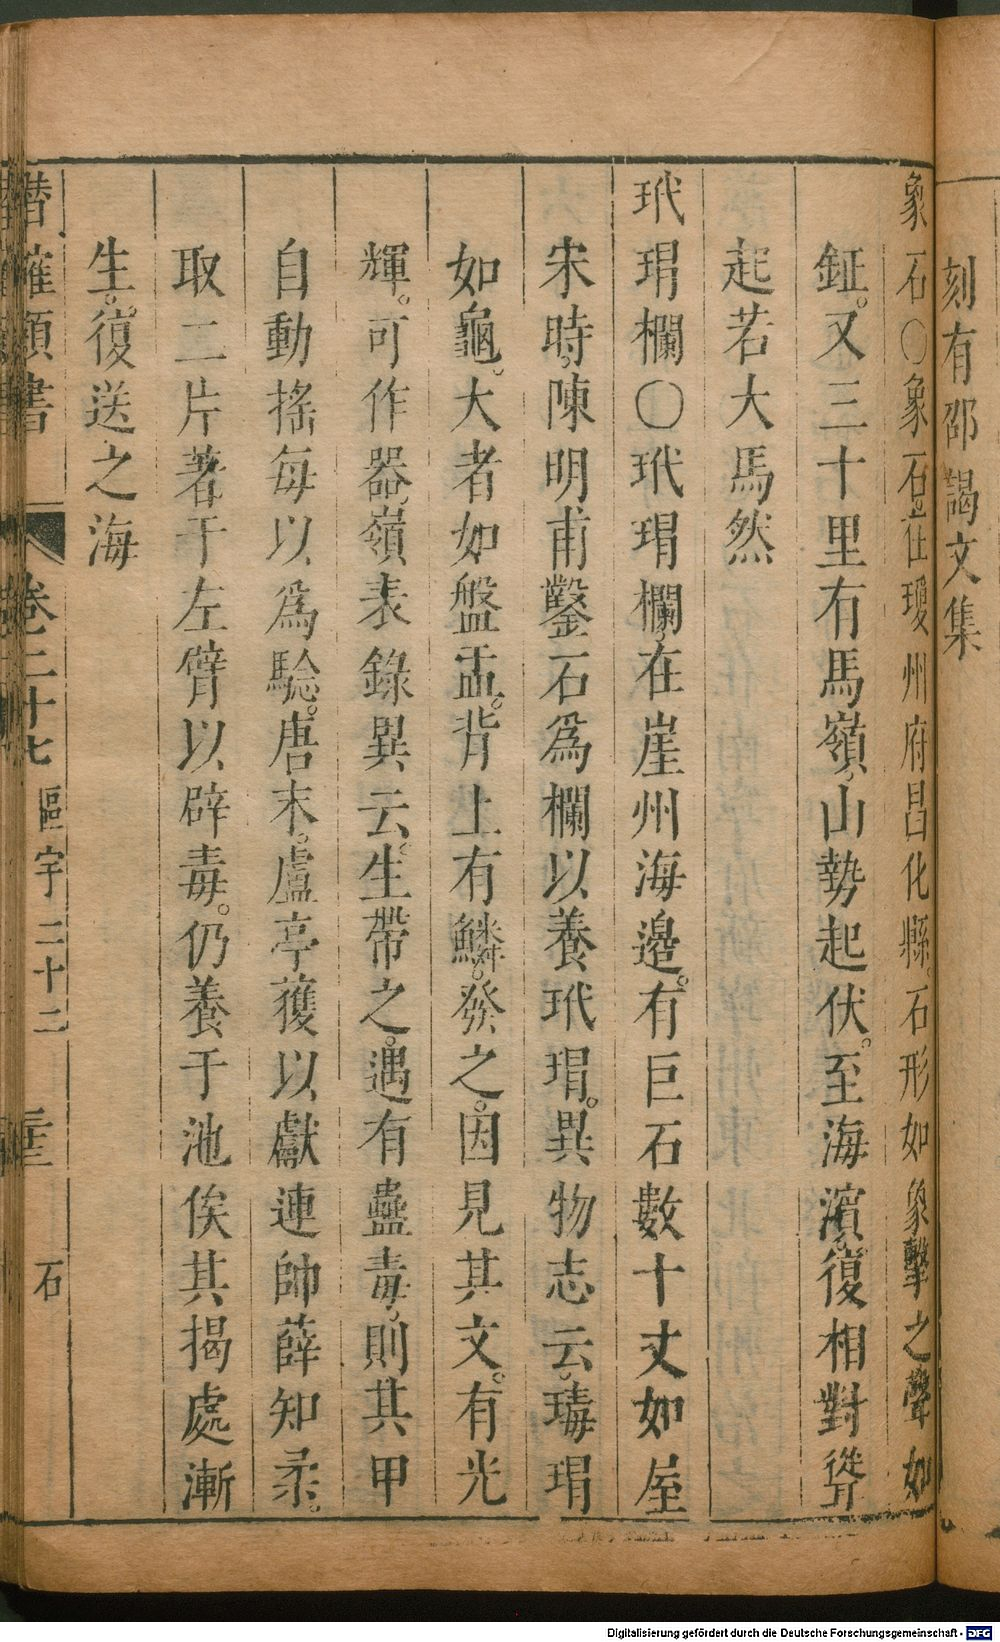 刻有邵謁文集
象石○象石在瓊州府昌化縣。石形如象擊之聲如
鉦。又三十里有馬嶺，山勢起伏。至海濱，復相對聳
起若大馬然
玳瑁欄○玳瑁欄，在崖州海邊。有巨石數十丈如屋
宋時，陳明甫鑿石爲欄以養玳瑁。異物志云，瑇瑁
如龜。大者如盤盂。背上有鱗。發之。因見其文。有光
輝。可作器，嶺表錄異云。生帶之。遇有蠱毒，則其甲
自動搖每以爲驗。唐末。盧亭獲以獻連帥薛知柔。
取二片著于左臂以辟毒。仍養于池俟其揭處漸
生。復送之海
潛確類書 卷二十七 區宇二十二 石
Digitalisierung gefördert durch die Deutsche Forschungsgemeinschaft - DFG